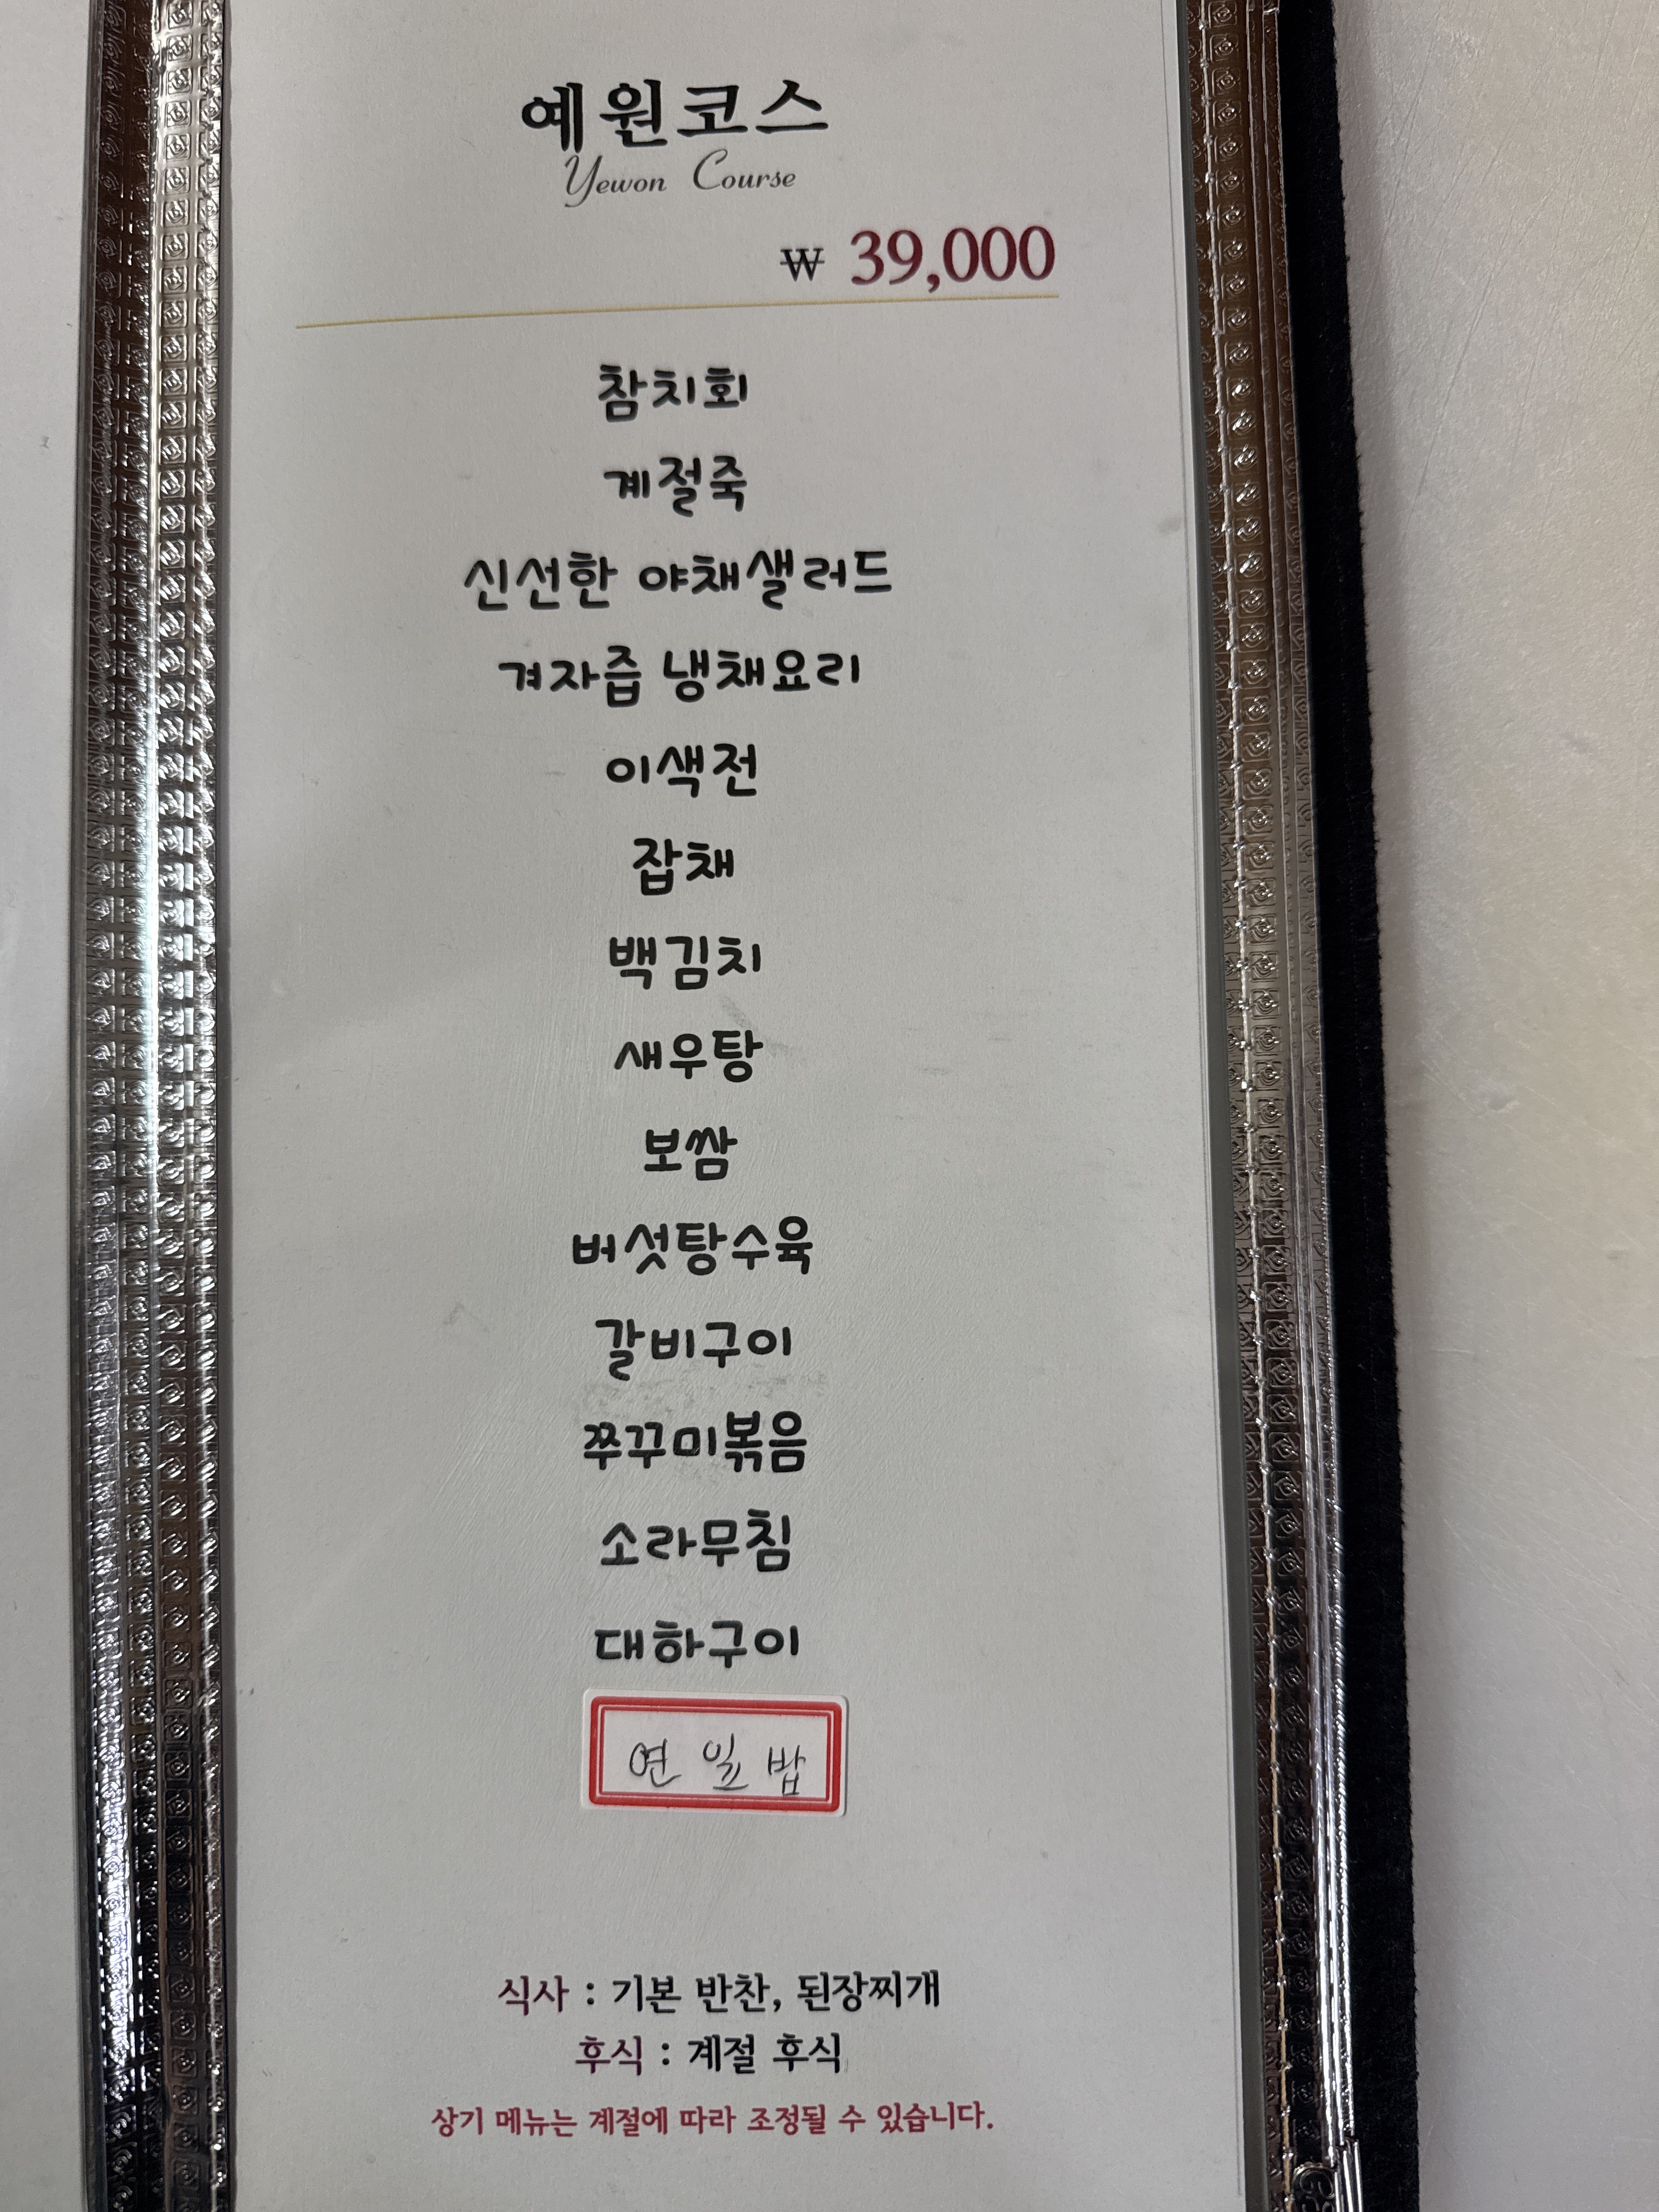 예원코스
Yewon Course
₩ 39,000
참치회
계절죽
신선한 야채샐러드
겨자즙 냉채요리
이색전
잡채
백김치
새우탕
보쌈
버섯탕수육
갈비구이
쭈꾸미볶음
소라무침
대하구이
연잎밥
식사 : 기본 반찬, 된장찌개
후식 : 계절 후식
상기 메뉴는 계절에 따라 조정될 수 있습니다.